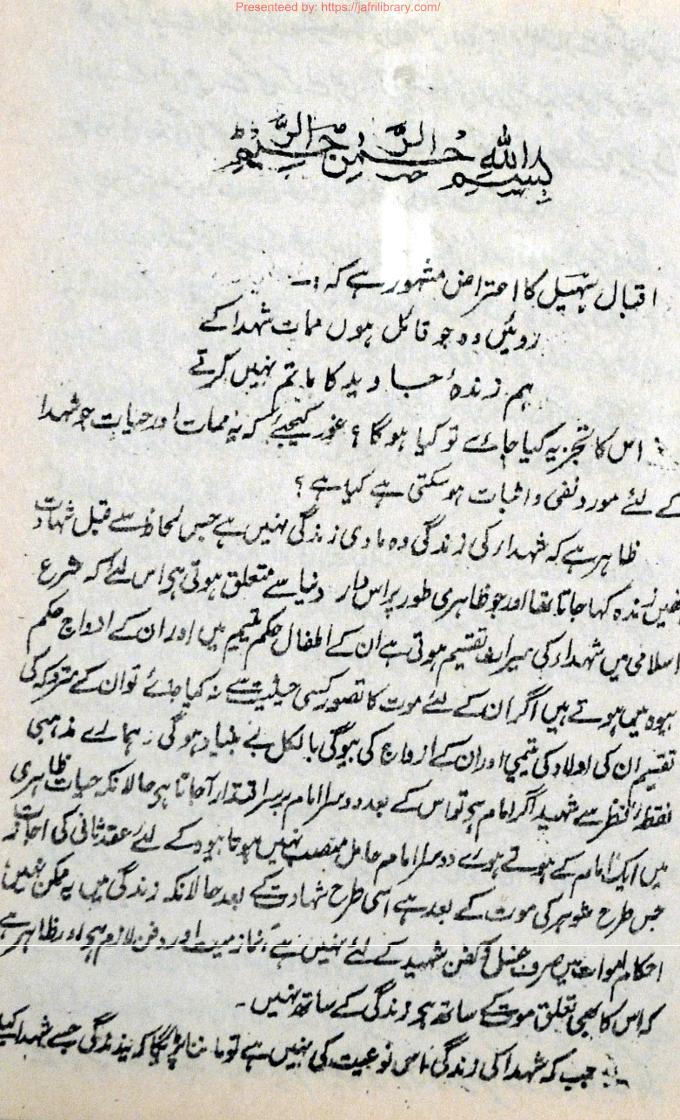 Presenteed by: https://jafrilibrary.com/
بسم الله الرحمن الرحیم
اقبال سہیل کا اعتراض مشہور ہے کہ :۔
روئیں وہ جو قائل ہوں ممات شہدا کے
ہم زندۂ جاوید کا ماتم نہیں کرتے
اس کا تجزیہ کیا جائے تو کیا ہوگا ؟ غور کیجیے کہ یہ ممات اور حیات جو شہدا
کے لئے مورد نفی و اثبات ہو سکتی ہے کیا ہے ؟
ظاہر ہے کہ شہداء کی زندگی وہ مادی زندگی نہیں ہے جس لحاظ سے قبل شہادت
انھیں زندہ کہا جاتا تھا اور جو ظاہری طور پر اس دار دنیا سے متعلق ہوتی ہے اس لئے کہ شرع
اسلامی میں شہداء کی میراث تقسیم ہوتی ہے ان کے اطفال حکم یتیم میں اور ان کے ازواج حکم
بیوہ میں ہوتے ہیں اگر ان کے لئے موت کا تصور کسی حیثیت سے نہ کیا جائے تو ان کے متروکہ کی
تقسیم ان کی اولاد کی یتیمی اور ان کے ازواج کی بیوگی بالکل بے بنیاد ہوگی ۔ ہمارے مذہبی
نقطۂ نظر سے شہید اگر امام ہے تو اس کے بعد دوسرا امام برسر اقتدار آجاتا ہے حالانکہ حیات ظاہری
میں ایک امام کے ہوتے ہوئے دوسرا امام حامل منصب نہیں ہوتا بیوہ کے لئے عقد ثانی کی اجازت
جس طرح شوہر کی موت کے بعد ہے اسی طرح شہادت کے بعد حالانکہ زندگی میں یہ ممکن نہیں
احکام اموات میں صرف غسل و کفن شہید کے لئے نہیں ہے، نماز میت اور دفن لازم ہے اور ظاہر ہے
کہ اس کا بھی تعلق موت کے ساتھ ہے زندگی کے ساتھ نہیں ۔
جب کہ شہدا کی زندگی اس نوعیت کی نہیں ہے تو ماننا پڑیگا کہ یہ زندگی جسے شہدا کیلئے